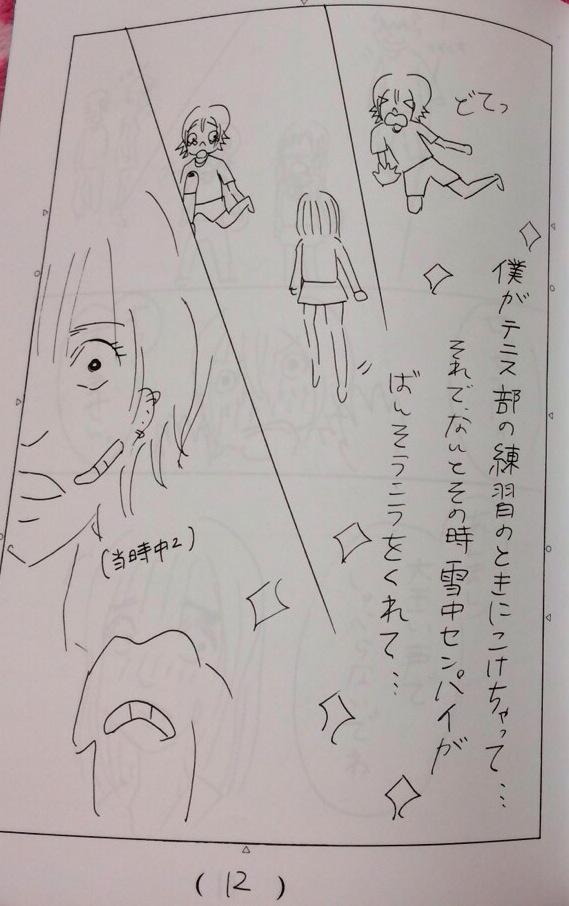 どてっ
僕がテニス部の練習のときにこけちゃって…
それで、なんとその時雪中センパイが
ばんそうこうをくれて…
(当時中2)
(12)